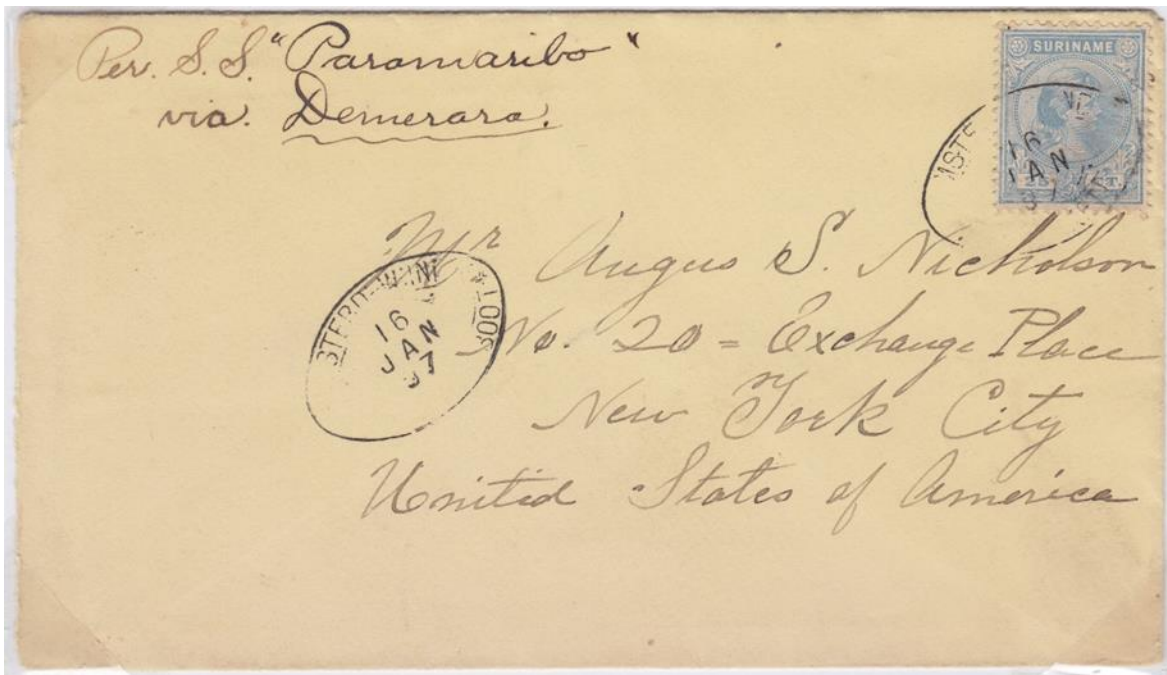 Per. S. S. "Paramaribo"
via. Demerara.
SURINAME
16
JAN
97
16
JAN
97
Mr Angus S. Nicholson
No. 20 = Exchange Place
New York City
United States of America